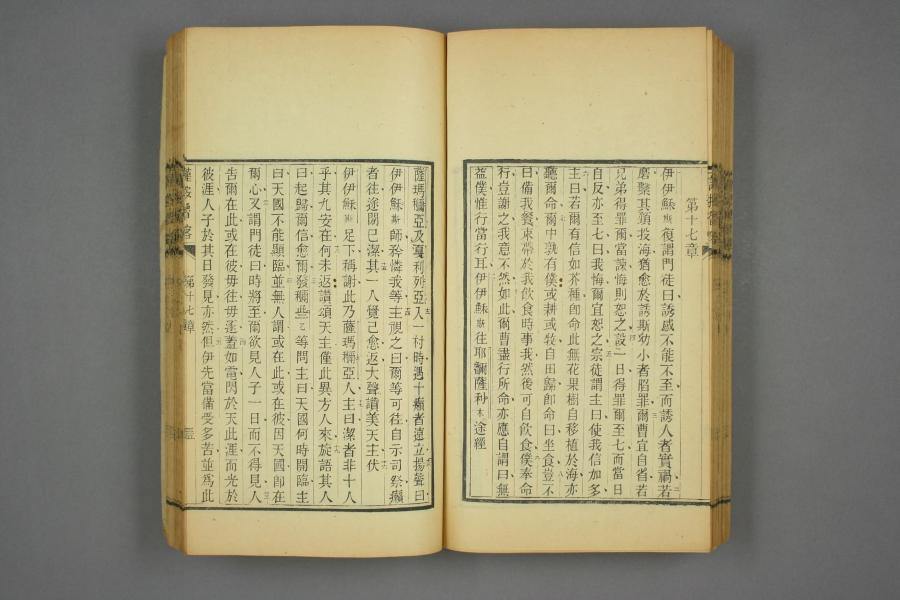 第十七章
伊伊穌斯復謂門徒曰誘惑不能不至而誘人者實禍若
磨繫其頸投海猶愈於誘斯幼小者陷罪爾曹宜自省若
兄弟得罪爾當諫悔則恕之設一日得罪爾至七而當日
自反亦至七曰我悔爾宜恕之宗徒謂主曰使我信加多
主曰若爾有信如芥種卽命此無花果樹自移植於海亦
聽爾命爾中孰有僕或耕或牧自田歸卽命曰坐食豈不
曰備我餐束帶於我飮食時事我然後可自飮食僕奉命
行豈謝之我意不然如此爾曹盡行所命亦應自謂曰無
益僕惟行當行耳伊伊穌斯往耶爾薩利木途經
薩瑪爾亞及戛利列亞入一村時遇十癩者遠立揚聲曰
伊伊穌斯師矜憐我等主視之曰爾等可往自示司祭癩
者往途間已潔其一人覺己愈返大聲讚美天主伏
伊伊穌斯足下稱謝此乃薩瑪爾亞人主曰潔者非十人
乎其九安在何未返讚頌天主僅此異方人來旋語其人
曰起歸爾信愈爾發爾些乙等問主曰天國何時開臨主
曰天國不能顯臨並無人謂或在此或在彼因天國卽在
爾心又謂門徒曰時將至爾欲見人子一日而不得見人
告爾在此或在彼毋往毋逐蓋如電閃於天此涯而光於
彼涯人子於其日發見亦然但伊先當備受多苦並爲此
第十七章